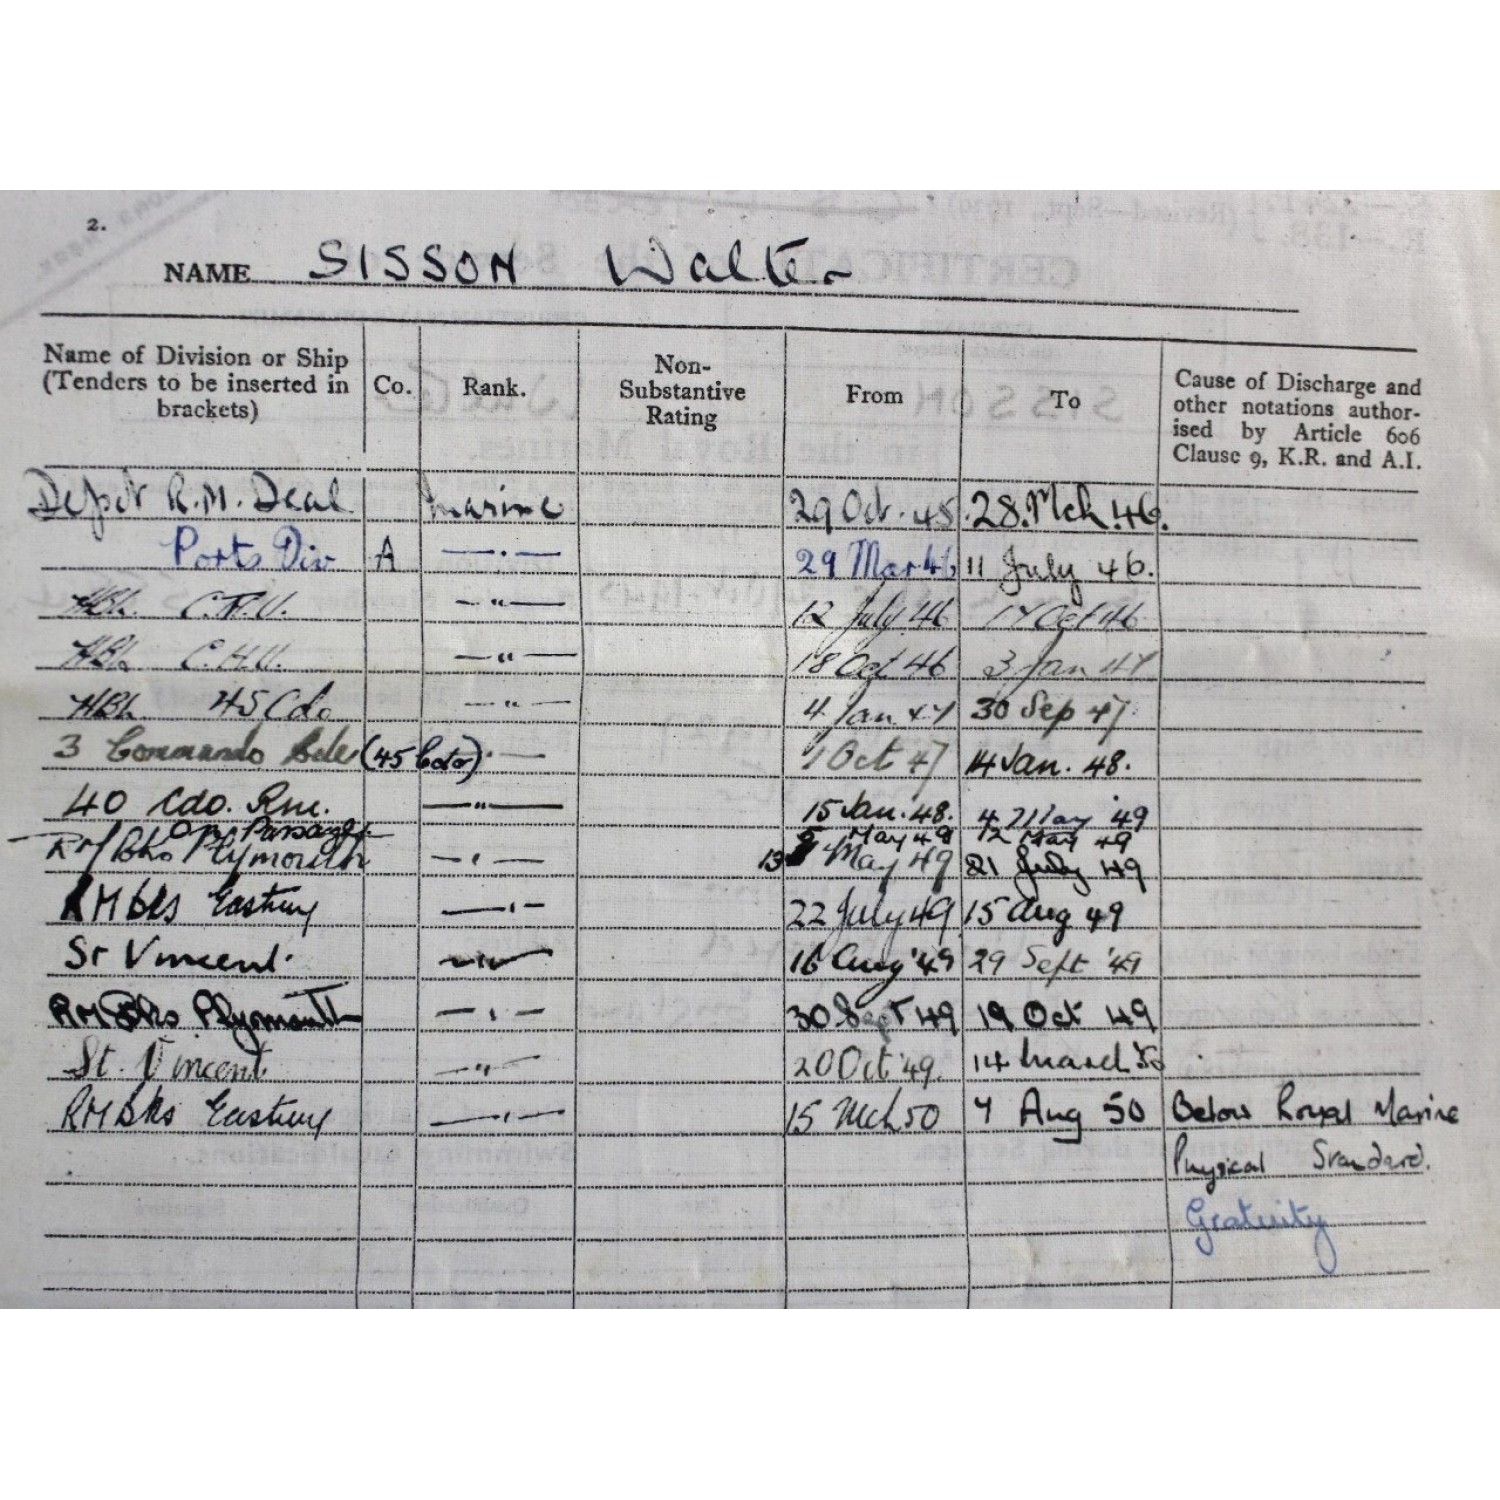 2.
NAME SISSON Walter
Name of Division or Ship (Tenders to be inserted in brackets) Co. Rank. Non-Substantive Rating From To Cause of Discharge and other notations authorised by Article 606 Clause 9, K.R. and A.I.
Depot R.M. Deal marine 29 Oct. 45 28.Mch.46.
Ports Div A —.— 29 Mar 46 11 July 46.
HBL C.T.U. —"— 12 July 46 17 Oct 46
HBL C.H.U. —"— 18 Oct 46 3 Jan 47
HBL 45 Cdo —"— 4 Jan 47 30 Sep 47
3 Commando Bde (45 Cdo) "— 1 Oct 47 14 Jan. 48.
40 Cdo. Rm. —"— 15 Jan. 48. 4 May '49
On Passage May 49 12 May 49
RM Bks Plymouth —"— 13 May 49 21 July 49
RM bks Eastney —"— 22 July 49 15 Aug 49
St Vincent. —"— 16 Aug '49 29 Sept '49
RM Bks Plymouth —"— 30 Sept 49 19 Oct 49
St. Vincent —"— 20 Oct '49. 14 March '50
RM bks Eastney —"— 15 Mch 50 7 Aug 50 Below Royal Marine
Physical Standard.
Gratuity